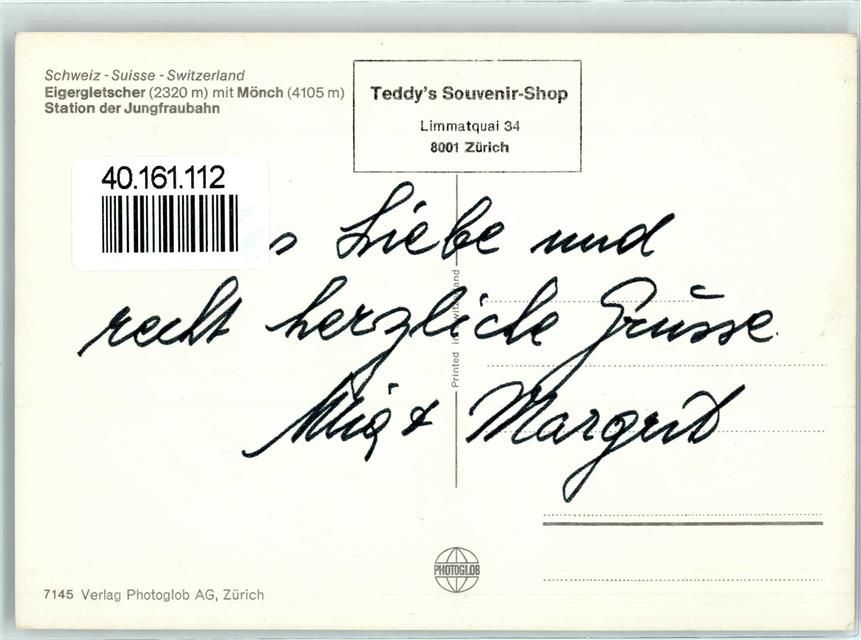 Schweiz - Suisse - Switzerland
Eigergletscher (2320 m) mit Mönch (4105 m)
Station der Jungfraubahn
Teddy's Souvenir-Shop
Limmatquai 34
8001 Zürich
40.161.112
s Liebe und
recht herzliche Grüsse
& Margrit
Printed in Switzerland
PHOTOGLOB
7145 Verlag Photoglob AG, Zürich